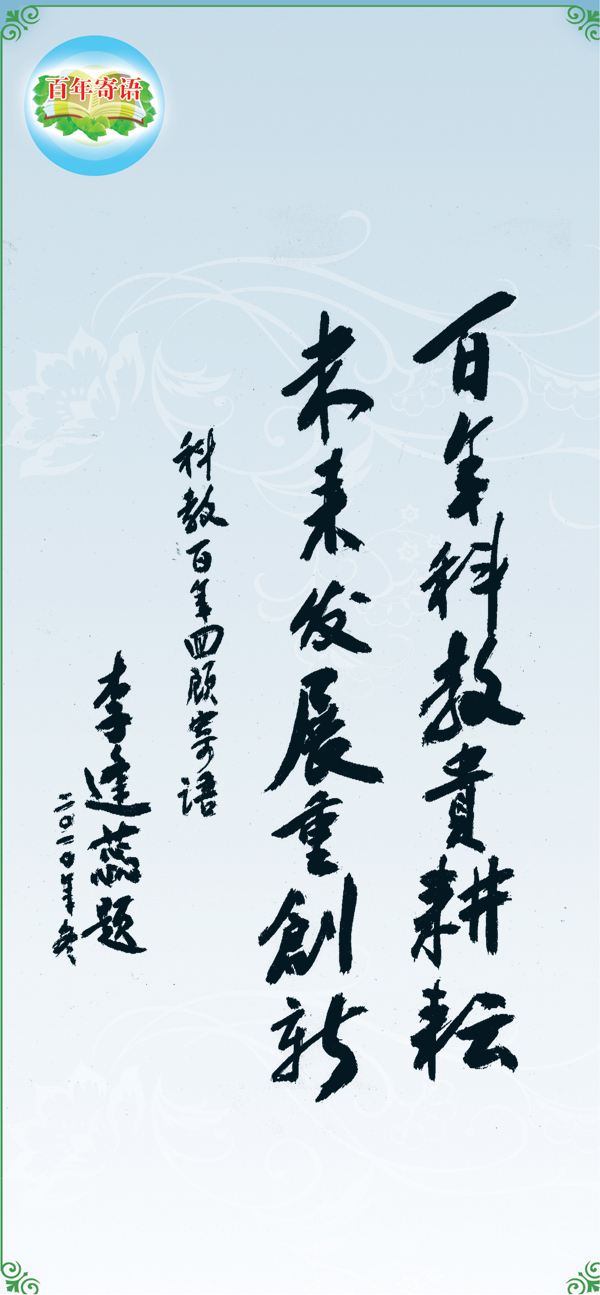 百年寄语
百年科教貴耕耘
未来发展重創新
科教百年回顾寄语
李逢蕊题
二〇一〇年冬